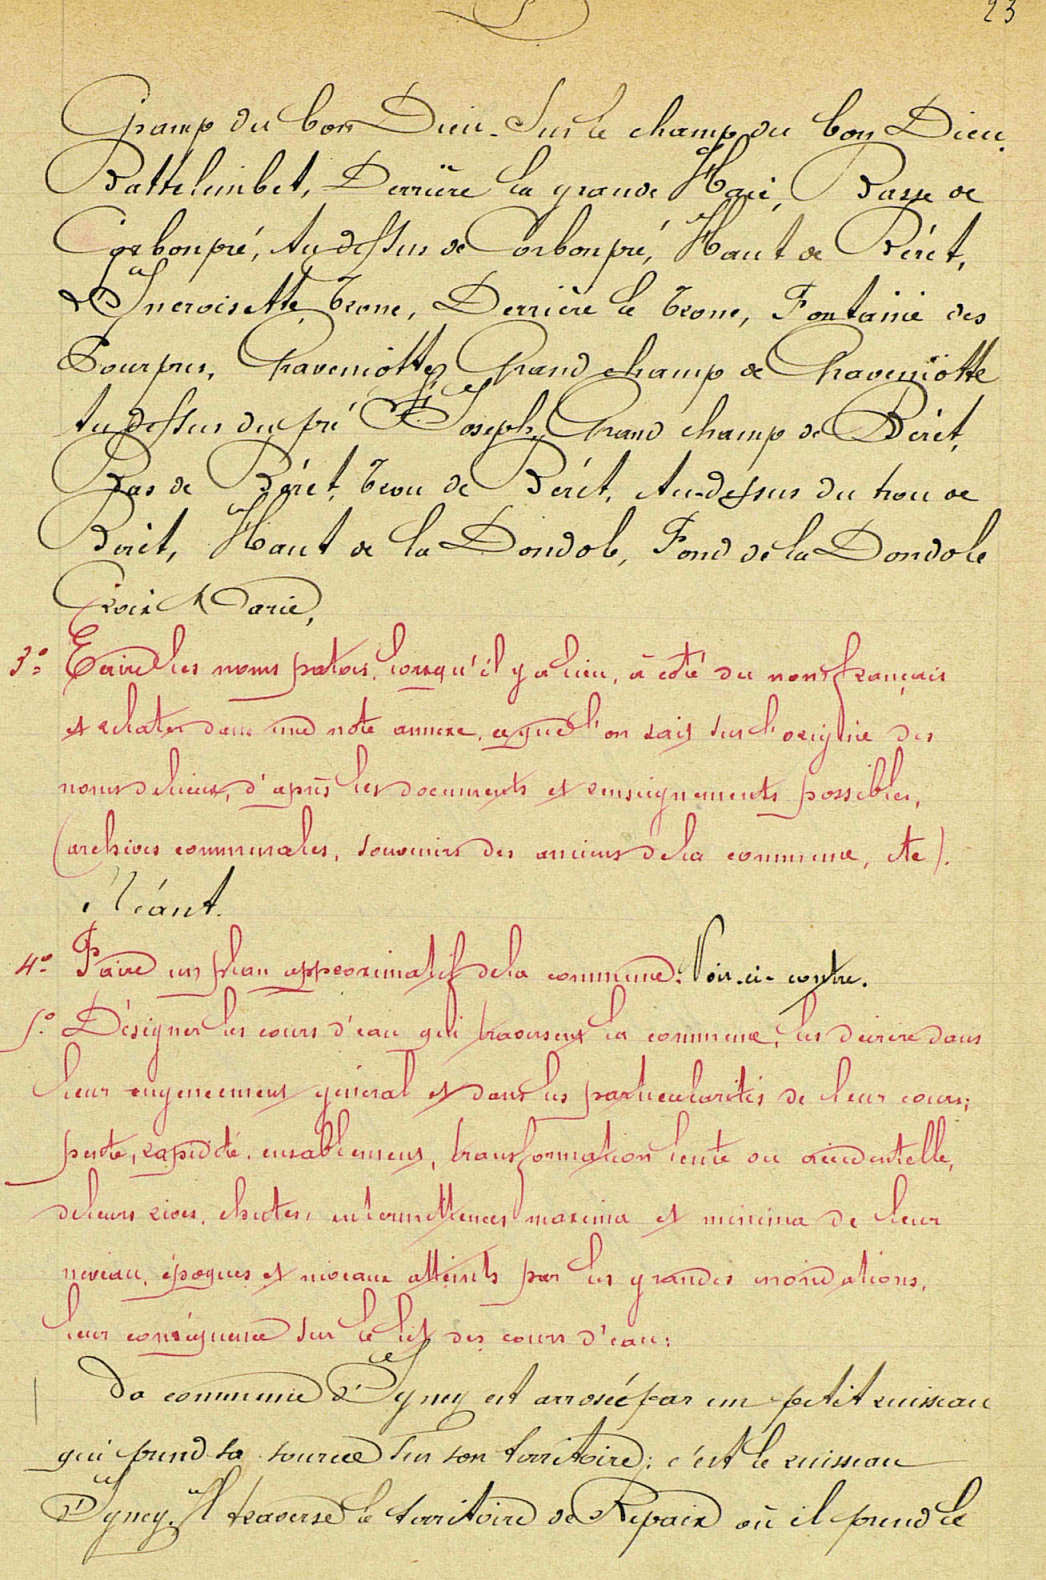 23
Champ du bon Dieu. Sur le champ du bon Dieu.
Battelimbet, Derrière la grande Haie, Basse de
Corbonpré, Au dessus de Corbonpré, Haut de Béret,
Incroisette, Trone, Derrière le Trone, Fontaine des
Chaveniotte, Grand champ de Chaveniotte
Au dessus du pré St Joseph, Grand champ de Béret,
Bas de Béret, Trou de Béret, Au-dessus du trou de
Béret, Haut de la Dondole, Fond de la Dondole
Croix Marie,
3° Ecrire les noms patois, lorsqu'il y a lieu, à côté du nom français
et relater dans une note annexe, ce que l'on sait sur l'origine des
noms de lieux, d'après les documents et renseignements possibles,
(archives communales, souvenirs des anciens de la commune, etc).
Néant.
4° Faire un plan approximatif de la commune. Voir ci-contre.
5° Désigner les cours d'eau qui traversent la commune, les décrire dans
leur engencement général et dans les particularités de leur cours;
pente, rapidité, ensablement, transformation lente ou accidentelle,
de leurs rives, chutes, intermittences maxima et minima de leur
niveau, époques et niveaux atteints par les grandes inondations,
leur conséquence sur le lit des cours d'eau:
La commune d'Igney est arrosée par un petit ruisseau
qui prend sa source sur son territoire; c'est le ruisseau
d'Igney. Il traverse le territoire de Repaix où il prend le